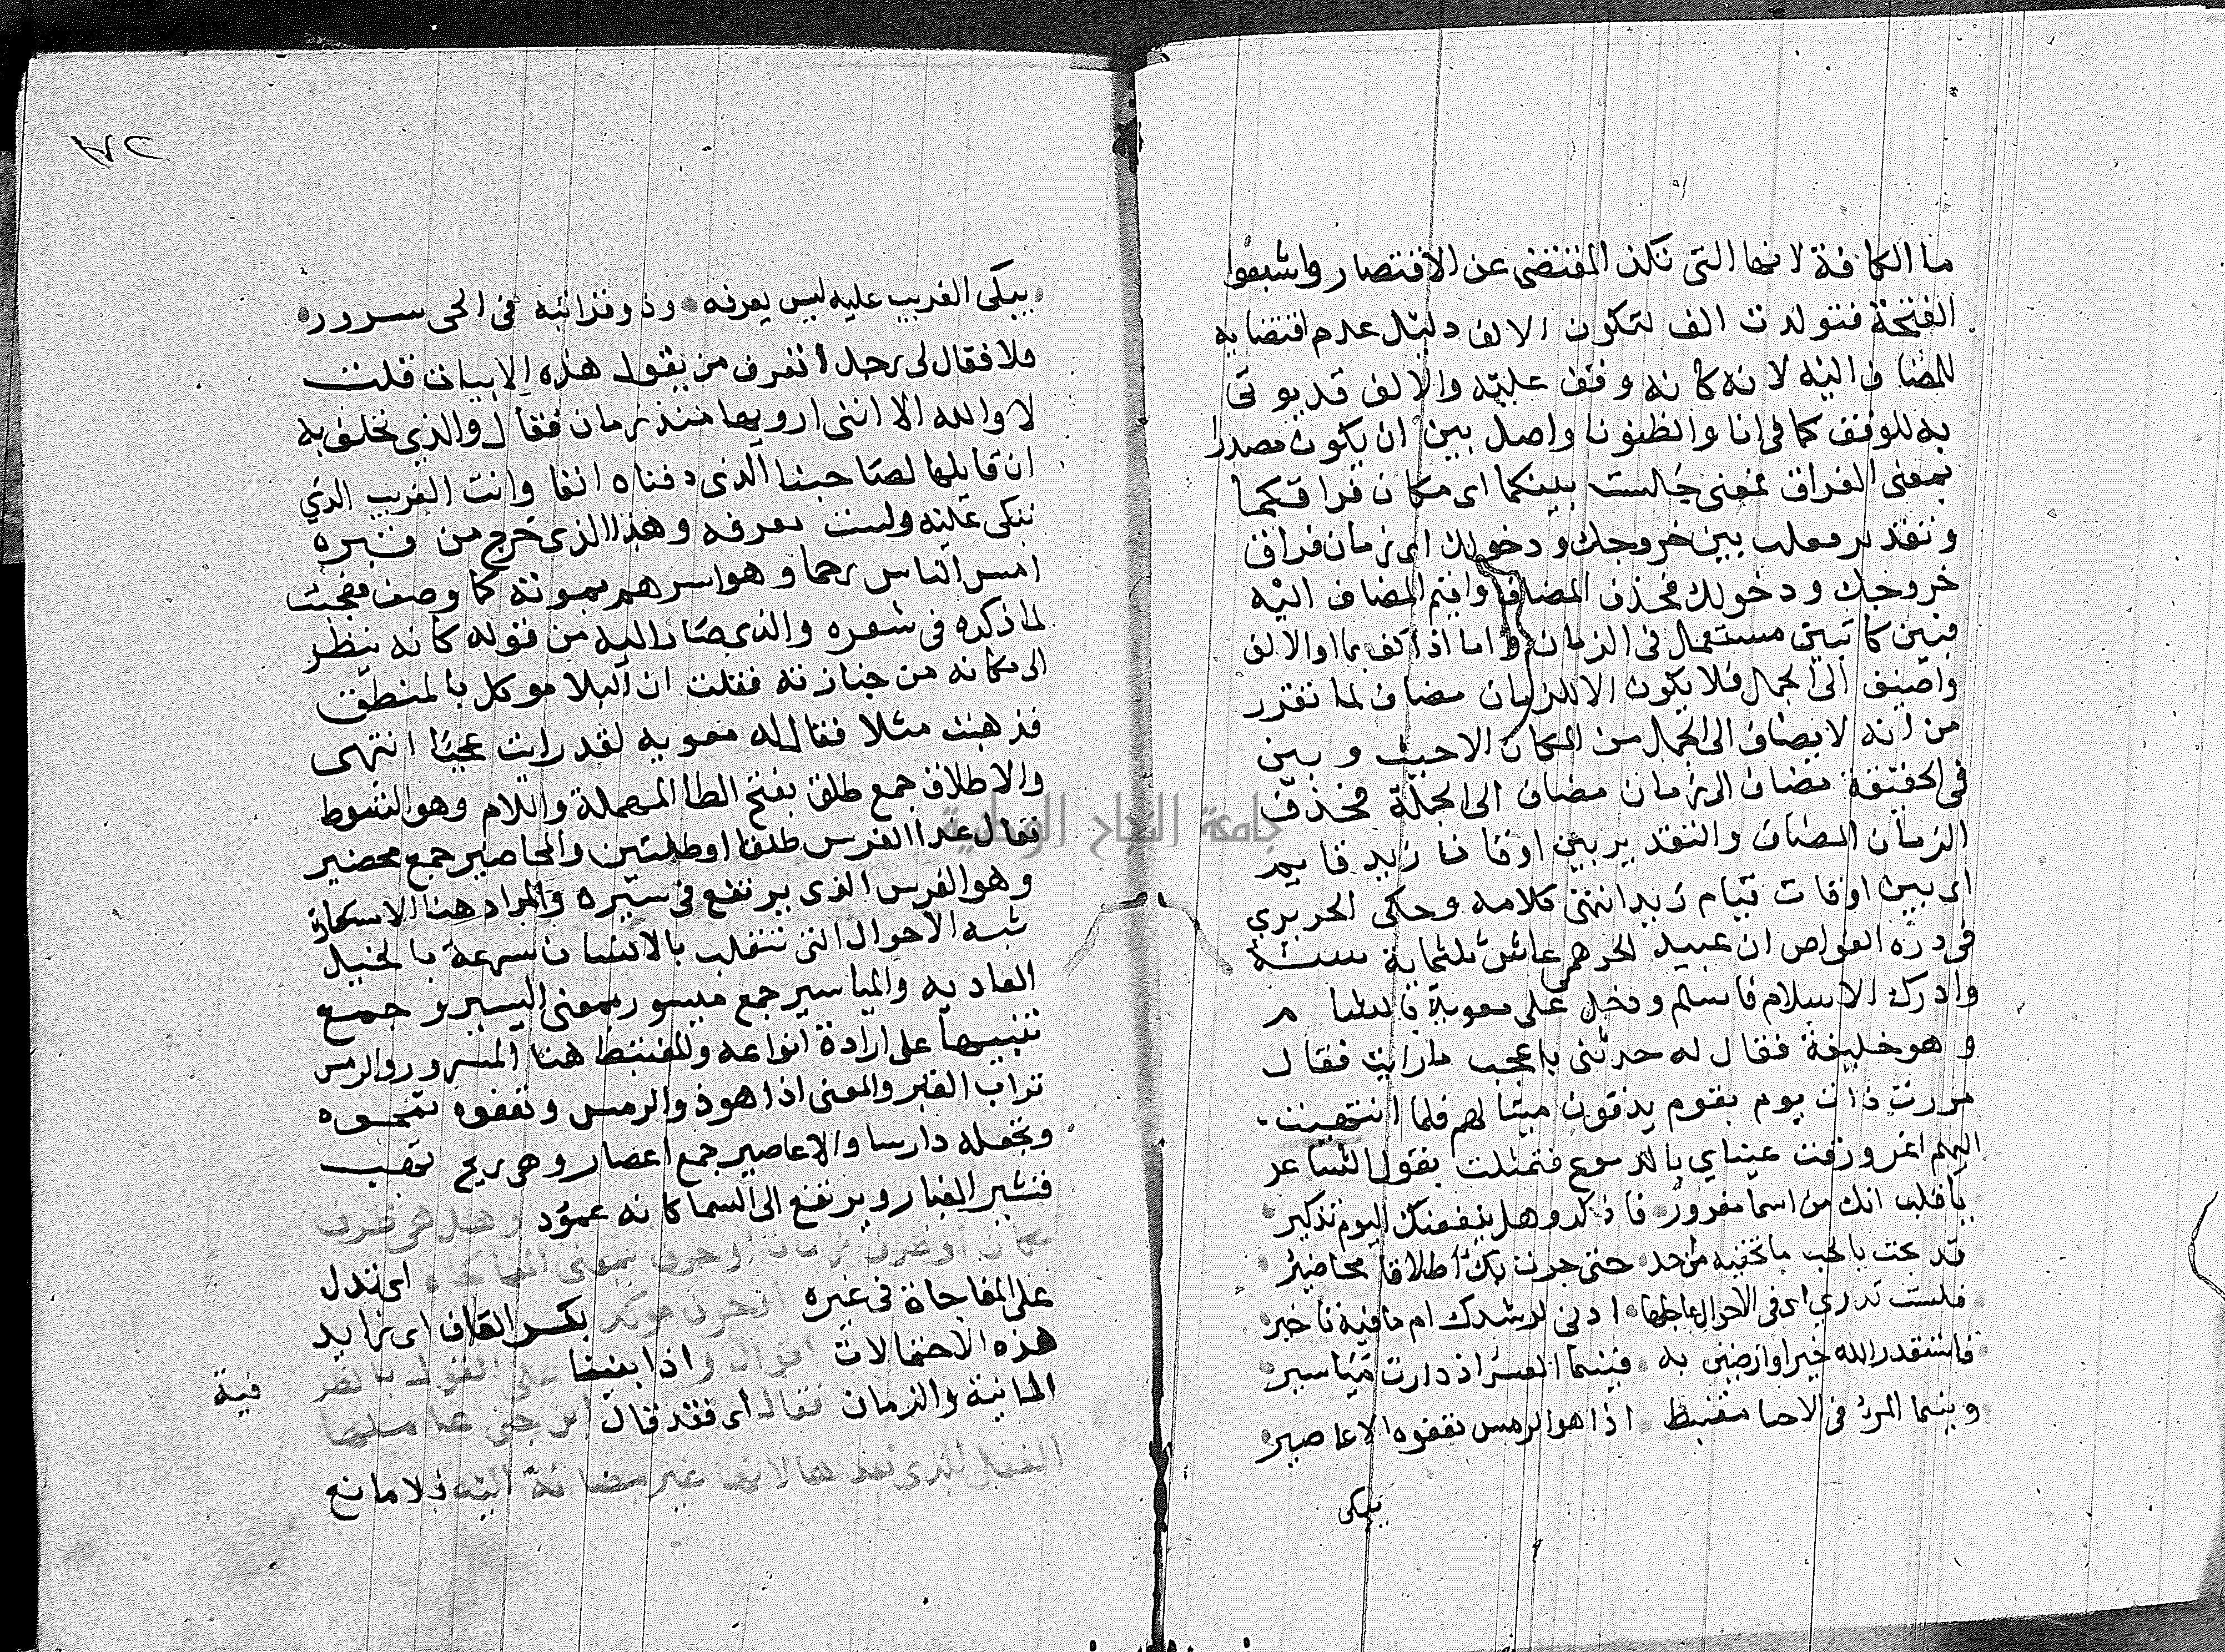 ما الكافة لانها التى تكف المقتضى عن الاقتصار واشبعوا
الفتحة فتولدت الف لتكون الالف دليل عدم اقتضايه
للمضاف اليه لانه كانه وقف عليه والالف قد يوتى
به للوقف كما فى انا والظنونا واصل بين ان يكون مصدرا
بمعنى الفراق فمعنى جلست بينكما اى مكان فراقكما
وتقدير فعلت بين خروجك ودخولك اى زمان فراق
خروجك ودخولك فحذف المضاف واقيم المضاف اليه
فبين كما تبين مستعمل فى الزمان واما اذا كف بما او الالف
واضيف الى الجمل فلا يكون الا للزمان مضاف لما تقرر
من انه لا يضاف الى الجمل من المكان الا حيث وبين
فى الحقيقة مضاف الى زمان مضاف الى الجملة فحذف
الزمان المضاف والتقدير بين اوقات زيد قايم
اى بين اوقات قيام زيد انتهى كلامه وحكى الحريرى
فى درة الغواص ان عبيد الجرهمى عاش ثلثماية سنة
وادرك الاسلام فاسلم ودخل على معوية بالشام
وهو خليفة فقال له حدثنى باعجب ما رايت فقال
مررت ذات يوم بقوم يدفون ميتا لهم فلما انتهيت
اليهم اغرورقت عيناى بالدموع فتمثلت بقول الشاعر
يا قلب انك من اسما مغرور فاذكر وهل ينفعنك اليوم تذكير
قد بحت بالحب ما تخفيه من احد حتى جرت بك اطلاقا محاضير
فلست تدرى اى فى الاحوال عاجلها ادنى لرشدك ام ما فيه تاخير
فاستقدر الله خيرا وارضين به فبينما العسر اذ دارت مياسير
وبينما المرء فى الاحيا مغتبط اذا هو الرمس تعفوه الاعاصير
يبكى
يبكى الغريب عليه ليس يعرفه وذو قرابته فى الحى مسرور
فلا فقال لى رجل اتعرف من يقول هذه الابيات قلت
لا والله الا اننى ارويها منذ زمان فقال والذى تحلف به
ان قايلها لصاحبنا الذى دفناه انفا وانت الغريب الذى
تبكى عليه ولست تعرفه وهذا الذى خرج من قبره
امس الناس رحما وهو اسرهم بموته كما وصف فعجبت
لما ذكره فى شعره والذى صار اليه من قوله كانه ينظر
الى مكانه من جنازته فقلت ان البلا موكل بالمنطق
فذهبت مثلا فقال له معويه لقد رايت عجبا انتهى
والاطلاق جمع طلق بفتح الطا المهملة واللام وهو الشوط
يقال عدا الفرس طلقا او طلقين والمحاضير جمع محضير
وهو الفرس الذى يرتفع فى سيره والمراد هنا الاستعارة
شبه الاحوال التى تتقلب بالانسان سرعة بالخيل
العاديه والمياسير جمع ميسور بمعنى اليسير وجمع
تنبيها على ارادة انواعه والمغتبط هنا المسرور والرمس
تراب القبر والمعنى اذا هو ذو الرمس وتعفوه تمحوه
وتجعله دارسا والاعاصير جمع اعصار وهى ريح تهب
فتثير الغبار ويرتفع الى السما كانه عمود وهل هى ظرف
مكان او ظرف زمان او حرف بمعنى المفاجاه اى تدل
على المفاجاة فى غيره او حرف موكد بكسر الكاف اى زايد
هذه الاحتمالات اقوال واذا بنينا على القول بالظر فية
المكانية والزمان فقال اى فقد قال ابن جنى عاملها
الفعل الذى بعدها لانها غير مضافة اليه فلا مانع
جامعة النجاح الوطنية